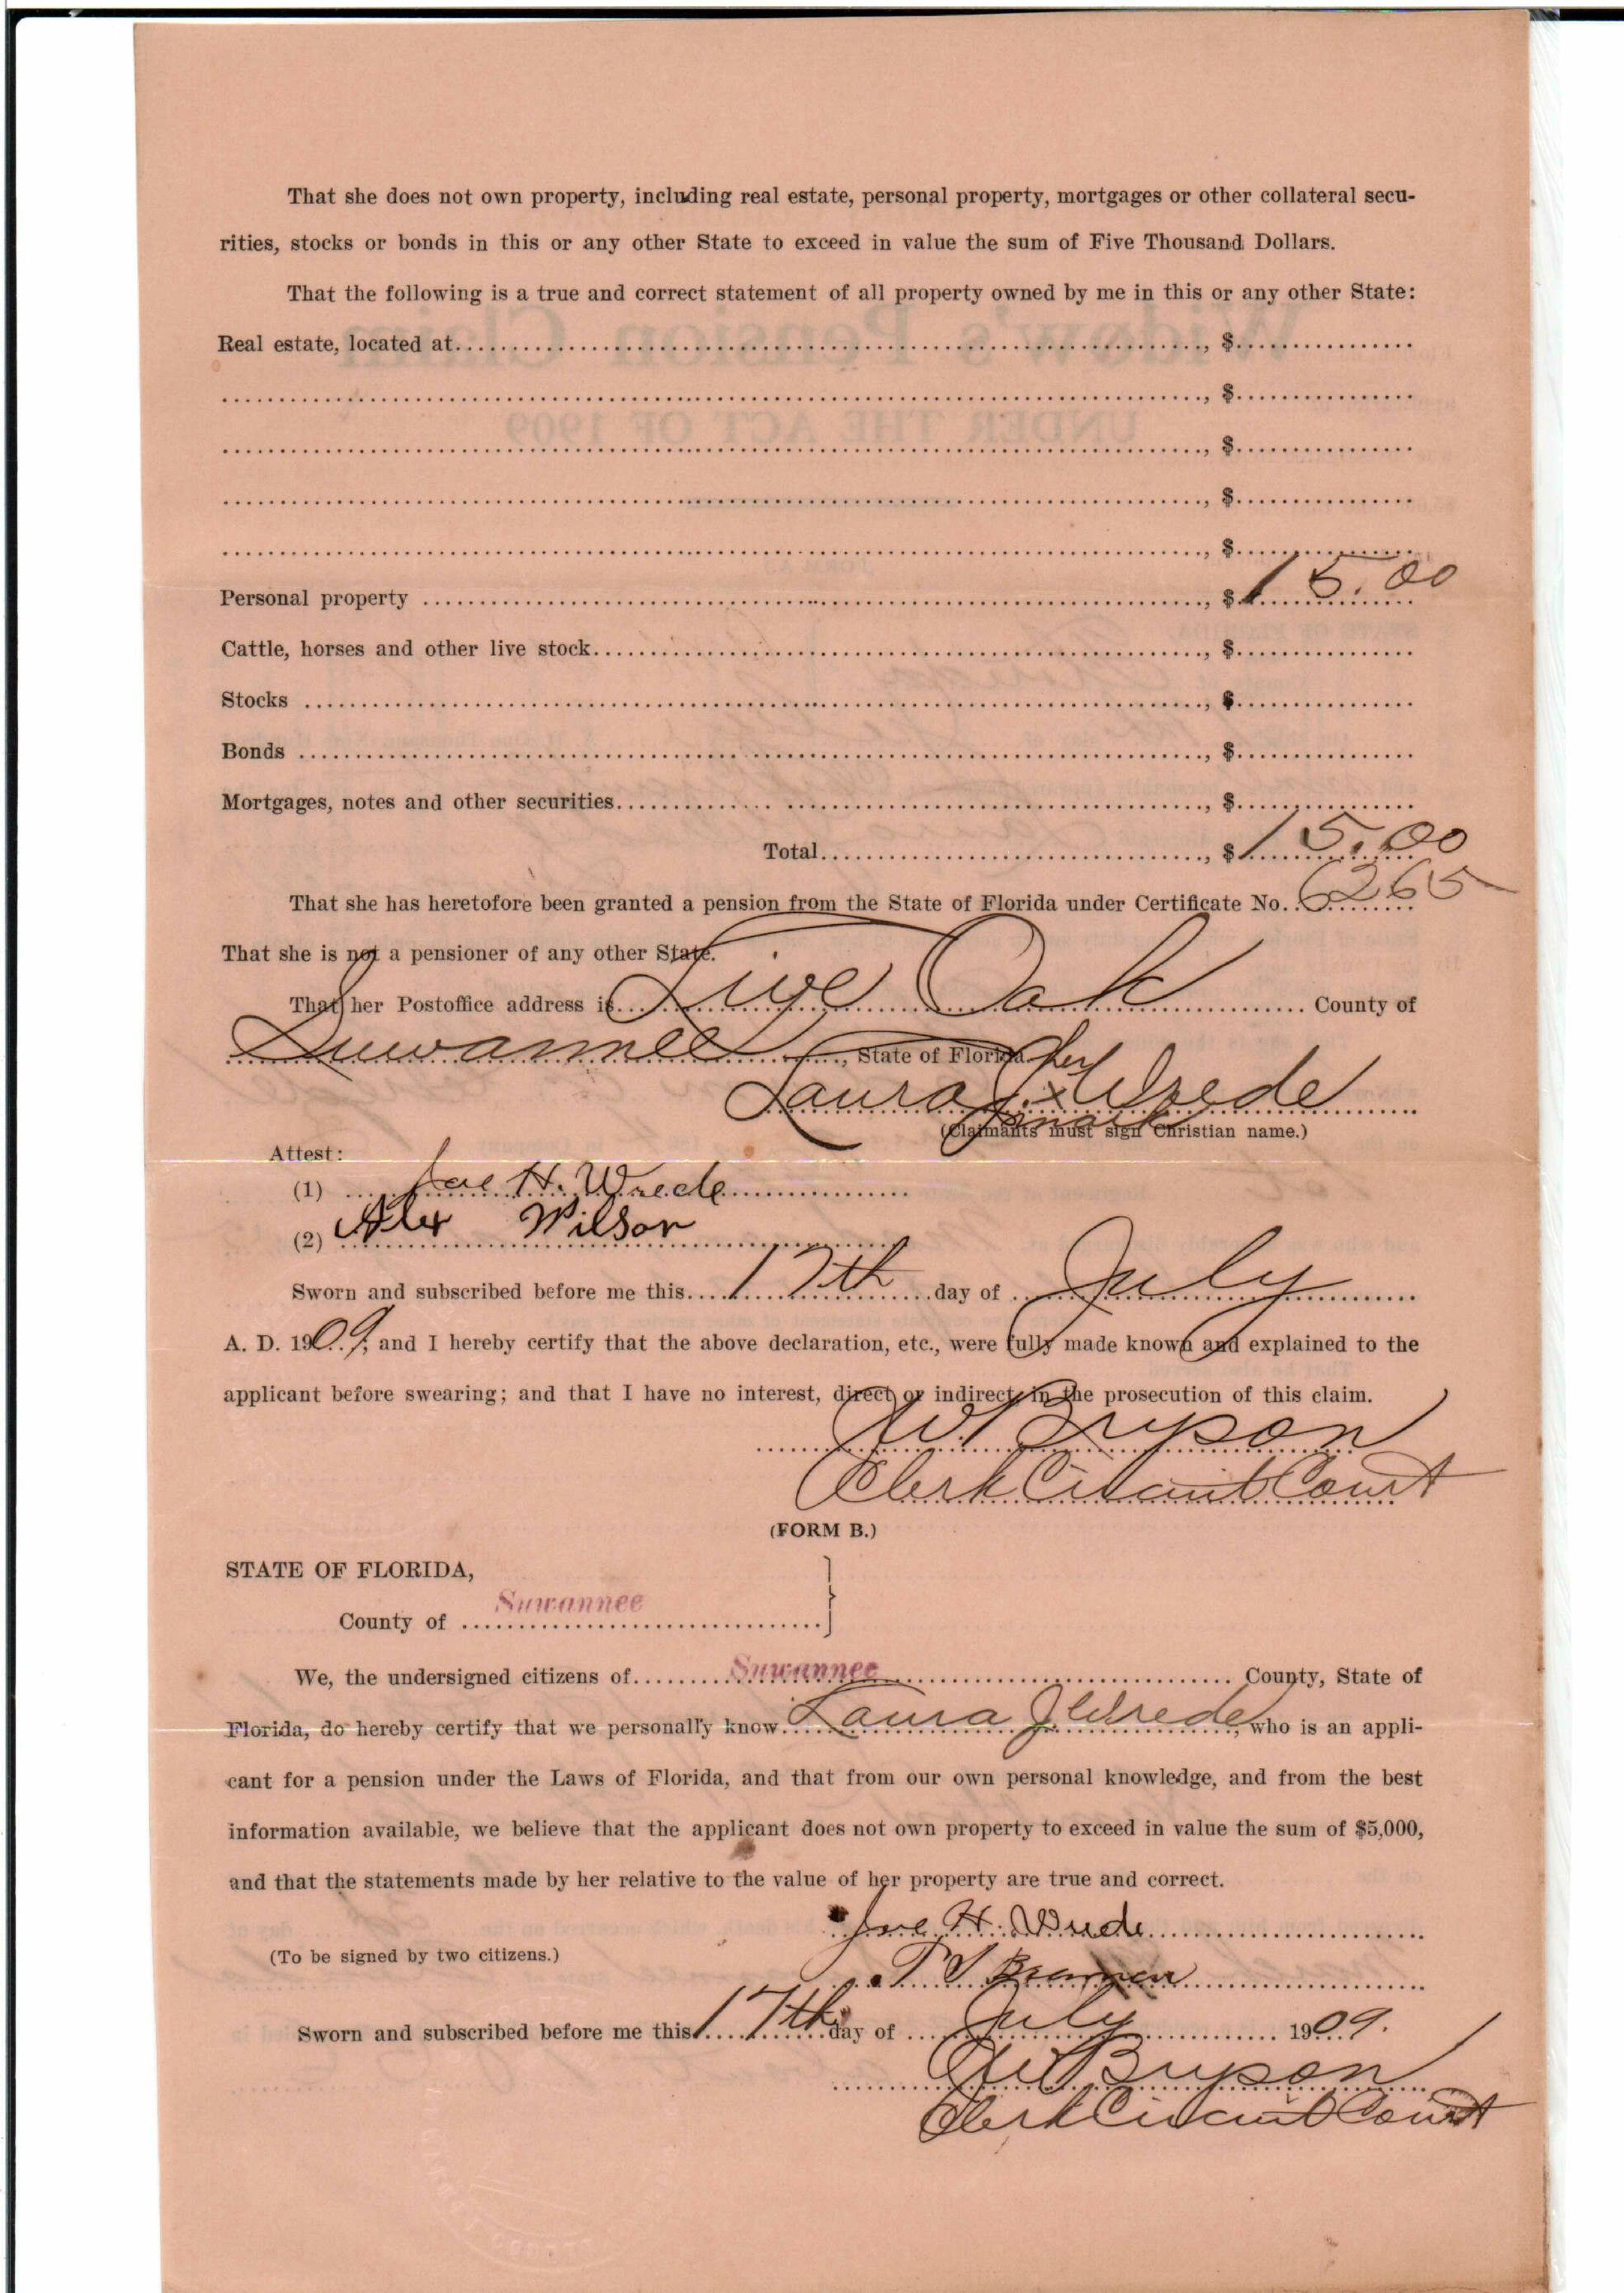 That she does not own property, including real estate, personal property, mortgages or other collateral secu-
rities, stocks or bonds in this or any other State to exceed in value the sum of Five Thousand Dollars.
That the following is a true and correct statement of all property owned by me in this or any other State:
Real estate, located at......................................................, $................
......................................................, $................
......................................................, $................
......................................................, $................
......................................................, $................
Personal property ......................................................, $15.00
Cattle, horses and other live stock......................................................, $................
Stocks ......................................................, $................
Bonds ......................................................, $................
Mortgages, notes and other securities......................................................, $................
Total......................................................, $15.00
That she has heretofore been granted a pension from the State of Florida under Certificate No. 6265
That she is not a pensioner of any other State.
That her Postoffice address is Live Oak County of
Suwannee, State of Florida.
her
Laura J. x Wrede
mark
(Claimants must sign Christian name.)
Attest:
(1) Joe H. Wrede
(2) Alex Wilson
Sworn and subscribed before me this 17th day of July
A. D. 1909, and I hereby certify that the above declaration, etc., were fully made known and explained to the
applicant before swearing; and that I have no interest, direct or indirect, in the prosecution of this claim.
Bryson
Clerk Circuit Court
(FORM B.)
STATE OF FLORIDA,
County of Suwannee
We, the undersigned citizens of Suwannee County, State of
Florida, do hereby certify that we personally know Laura J Wrede, who is an appli-
cant for a pension under the Laws of Florida, and that from our own personal knowledge, and from the best
information available, we believe that the applicant does not own property to exceed in value the sum of $5,000,
and that the statements made by her relative to the value of her property are true and correct.
Joe H. Wrede
(To be signed by two citizens.)
Sworn and subscribed before me this 17th day of July 1909.
Bryson
Clerk Circuit Court